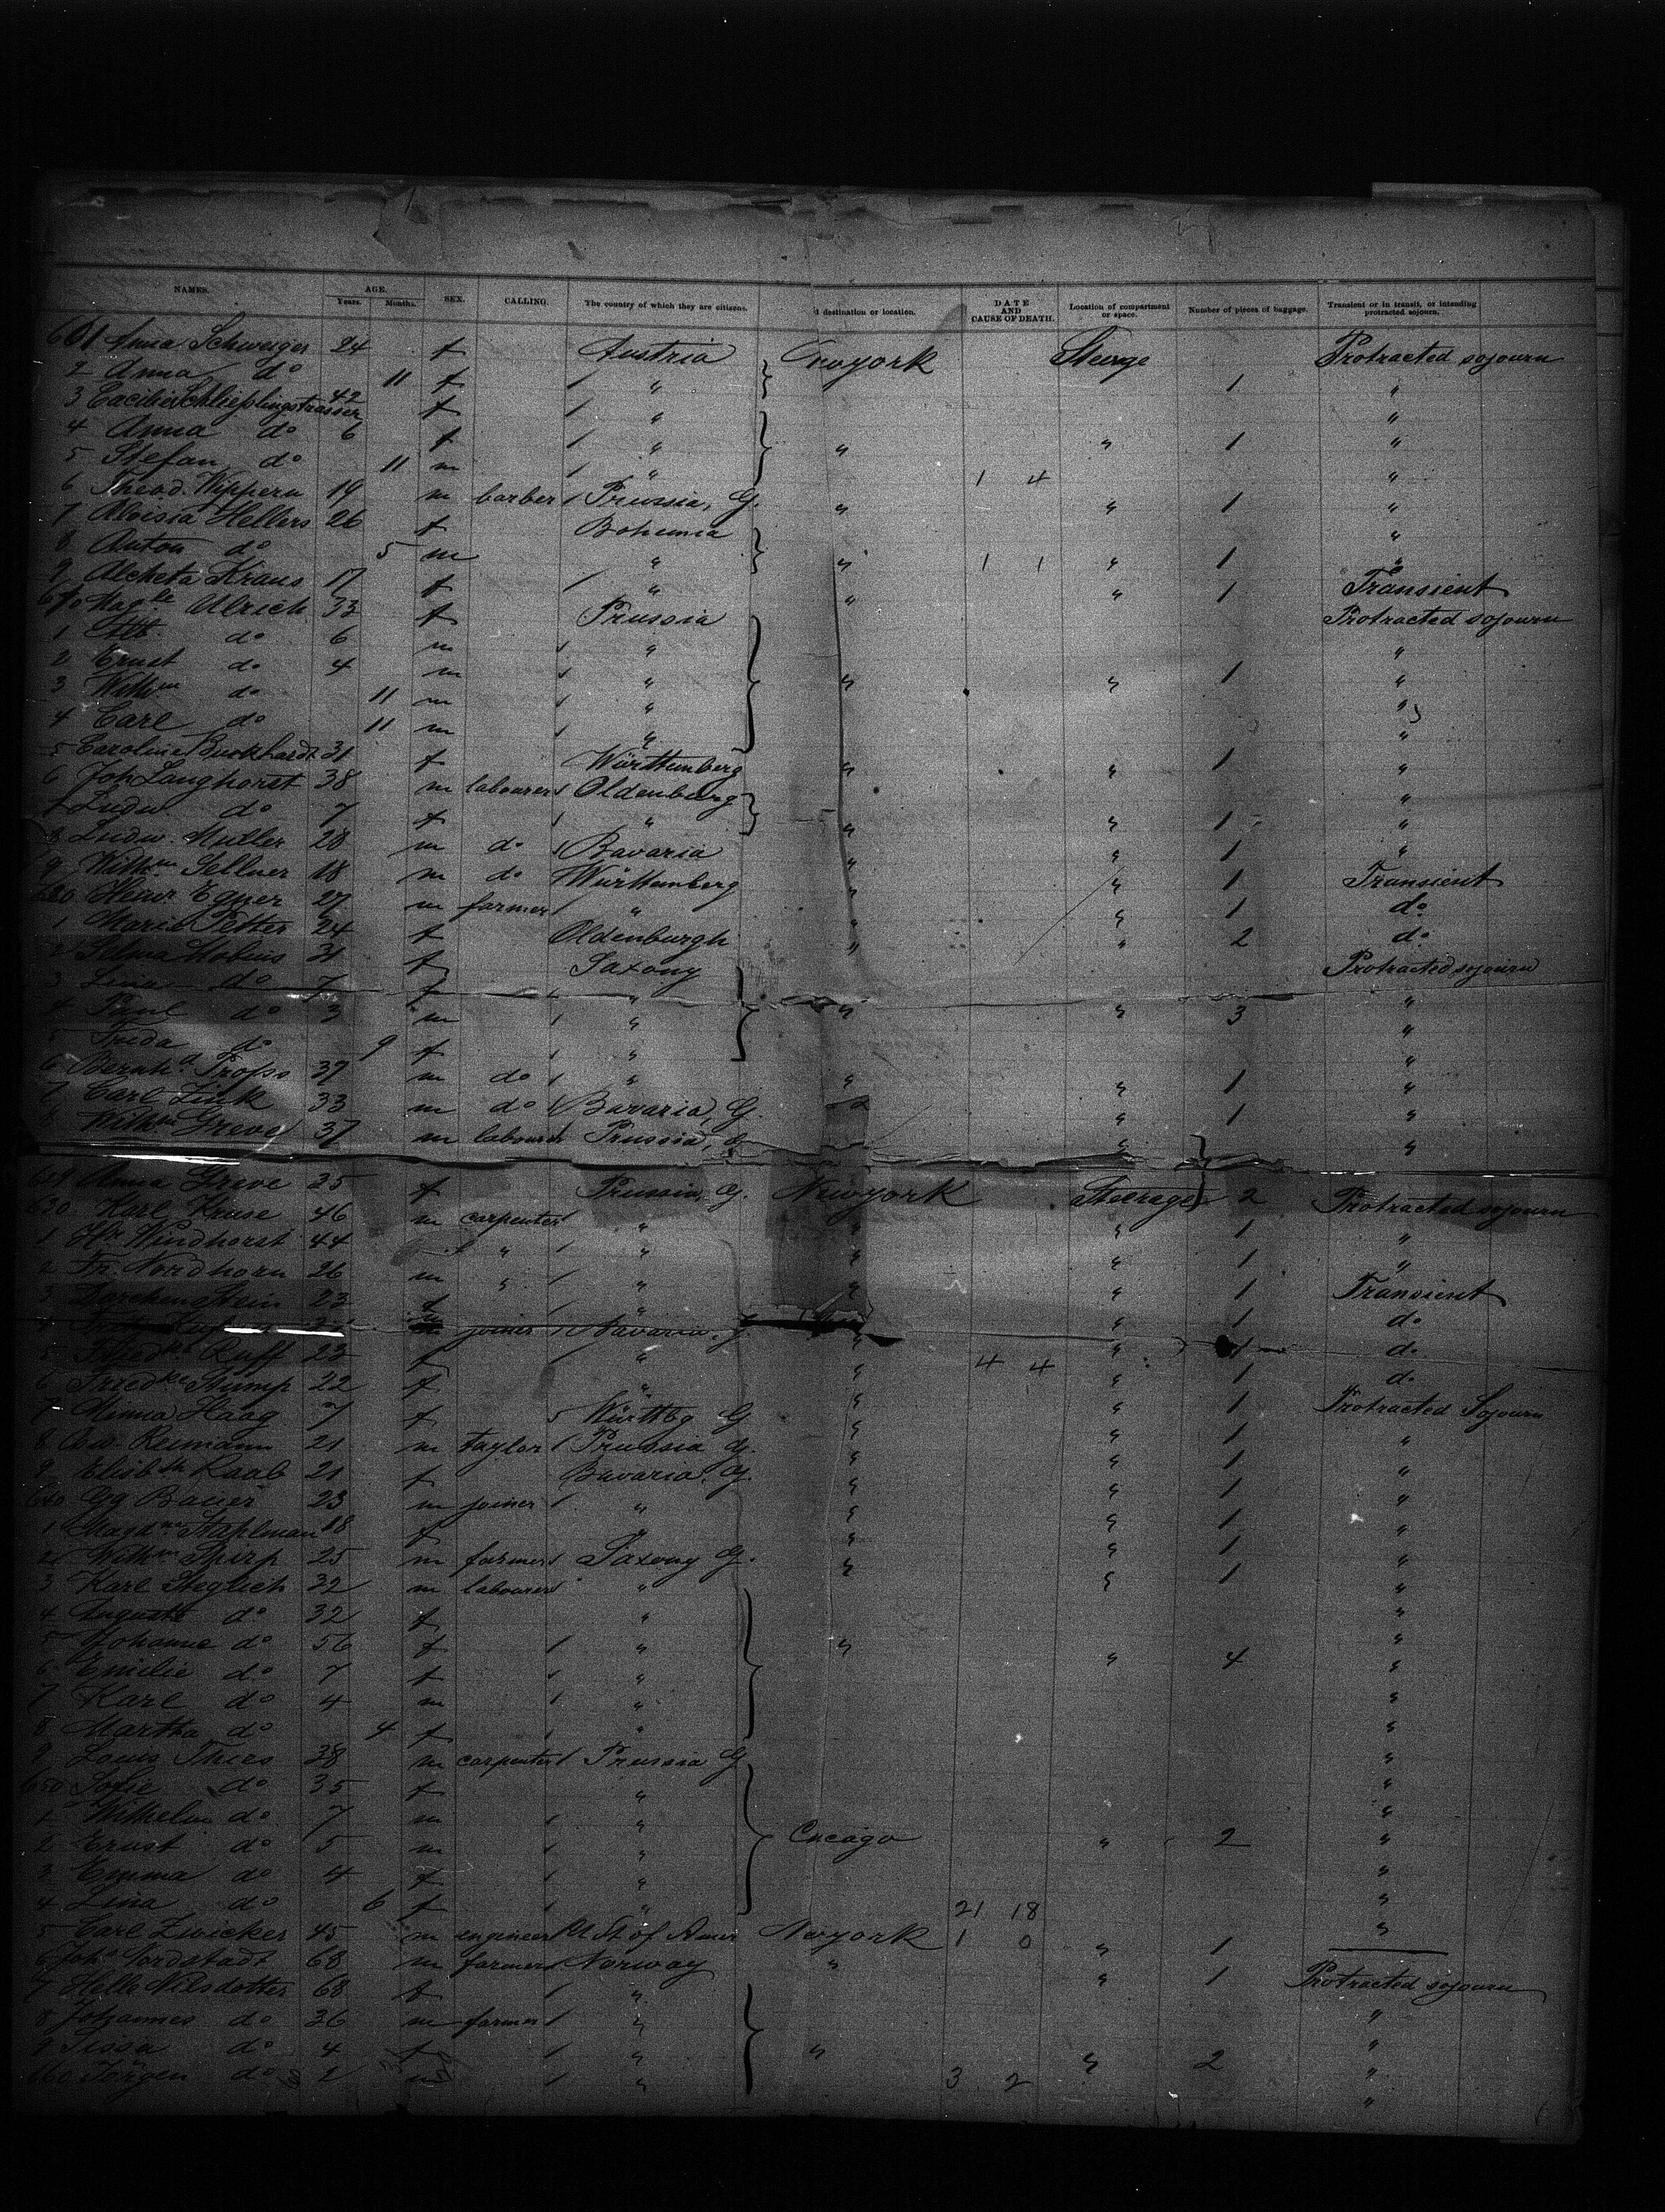 NAMES. AGE. Years. Months. SEX. CALLING. The country of which they are citizens. d destination or location. DATE AND CAUSE OF DEATH. Location of compartment or space. Number of pieces of baggage. Transient or in transit, or intending protracted sojourn.
601 Anna Schweiger 24 f Austria Newyork Steerge Protracted sojourn
2 Anna do 11 f " 1 "
3 42 f " "
4 Anna do 6 f " " " 1 "
5 Stefan do 11 m " 1 4 "
6 Theod. Wippern 19 m barber Prussia, G. " " 1 "
7 Aloisia Hellers 26 f Bohemia "
8 Anton do 5 m " " 1 1 " 1 "
9 Kraus 17 f " " " 1 Transient
610 Ulrich 33 f Prussia Protracted sojourn
1 Alb. do 6 m " "
2 Ernst do 4 m " " " 1 "
3 Wilhm do 11 m " "
4 Carl do 11 m " "
5 Caroline Burkhardt 31 f Württemberg " " 1 "
6 Joh Langhorst 38 m labourer Oldenburg "
7 Ludw. do 7 f " " " 1 "
8 Ludw. Muller 28 m do Bavaria " " 1 "
9 Wilhm Sellner 18 m do Württemberg " " 1 Transient
620 Heinr Egner 27 m farmer " " " 1 do
1 Marie Petter 24 f Oldenburgh " " 2 do
2 Selma Mobius 31 f Saxony Protracted sojourn
3 Lina do 7 f " "
4 Paul do 3 m " " " 3 "
5 Frieda do 9 f " "
6 Bernhd 37 m do " " " 1 "
7 Carl Zink 33 m do Bavaria, G. " " 1 "
8 Wilhm Greve 37 m labourer Prussia, G " "
629 Anna Greve 35 f Prussia, G. Newyork Steerage 2 Protracted sojourn
630 Karl Kruse 46 m carpenter " " " 1 "
1 Hr Windhorst 44 " " " " 1 "
2 Fr. Nordhorn 26 m " " " " 1 Transient
3 23 f " " " 1 do
4 joiner Bavaria. G. " " 1 do
5 Ruff 23 f " " 4 4 " 1 do
6 Friedke Stump 22 f " " " 1 Protracted Sojourn
7 Minna Haag 7 f Württbg G " " 1 "
8 Reimann 21 m taylor Prussia G. " " 1 "
9 Elisbth Raab 21 f Bavaria. G. " " 1 "
640 Gg Bauer 23 m joiner " " " 1 "
1 18 f " " " 1 "
2 Wilhm 25 m farmer Saxony G. " " 1 "
3 Karl Steglich 32 m labourer " "
4 Auguste do 32 f " "
5 Johanne do 56 f " " " 4 "
6 Emilie do 7 f " "
7 Karl do 4 m " "
8 Martha do 4 f " "
9 Louis Thies 38 m carpenter Prussia G "
650 Sofie do 35 f " "
1 Wilhelm do 7 m " "
2 Ernst do 5 m " Chicago " 2 "
3 Emma do 4 f " "
4 Lina do 6 f " 21 18 "
5 Carl Zwicker 45 m engineer U St of Amer Newyork 1 0 " 1
6 Joh. Nordstadt 68 m farmer Norway " " 1 Protracted sojourn
7 Helle Nilsdotter 68 f " "
8 Johannes do 36 m farmer " "
9 Sissa do 4 f " " " 2 "
660 Jörgen do 2 m " 3 2 "